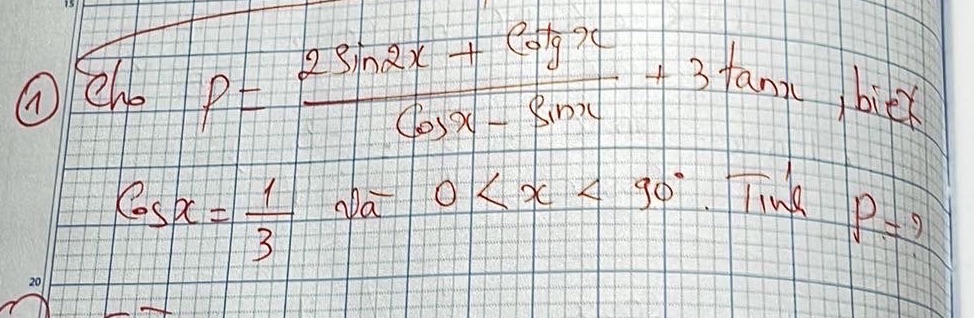 15
① Cho P = (2 sin2x + Cotg x) / (Cosx - Sinx) + 3 tanx, biết
Cosx = 1/3 và 0 < x < 90°. Tính P = ?
20